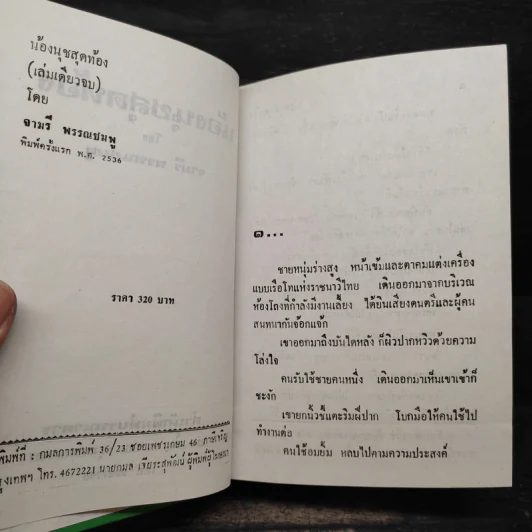 น้องนุชสุดท้อง
(เล่มเดียวจบ)
โดย
จามรี พรรณชมพู
พิมพ์ครั้งแรก พ.ศ. 2536
ราคา 320 บาท
พิมพ์ที่ : กมลการพิมพ์ 36/23 ซอยเพชรเกษม 46 ภาษีเจริญ
กรุงเทพฯ โทร. 4672221 นายกมล ผู้พิมพ์ผู้โฆษณา
๑...
ชายหนุ่มร่างสูง หน้าเข้มและตาคมแต่งเครื่อง
แบบเรือโทแห่งราชนาวีไทย เดินออกมาจากบริเวณ
ห้องโถงที่กำลังมีงานเลี้ยง ได้ยินเสียงดนตรีและผู้คน
สนทนากันจ๊อกแจ๊ก
เขาออกมาถึงบันไดหลัง ก็ผิวปากหวิวด้วยความ
โล่งใจ
คนรับใช้ชายคนหนึ่ง เดินออกมาเห็นเขาเข้าก็
ชะงัก
เขายกนิ้วชี้แตะริมฝีปาก โบกมือให้คนใช้ไป
ทำงานต่อ
คนใช้อมยิ้ม หลบไปตามความประสงค์